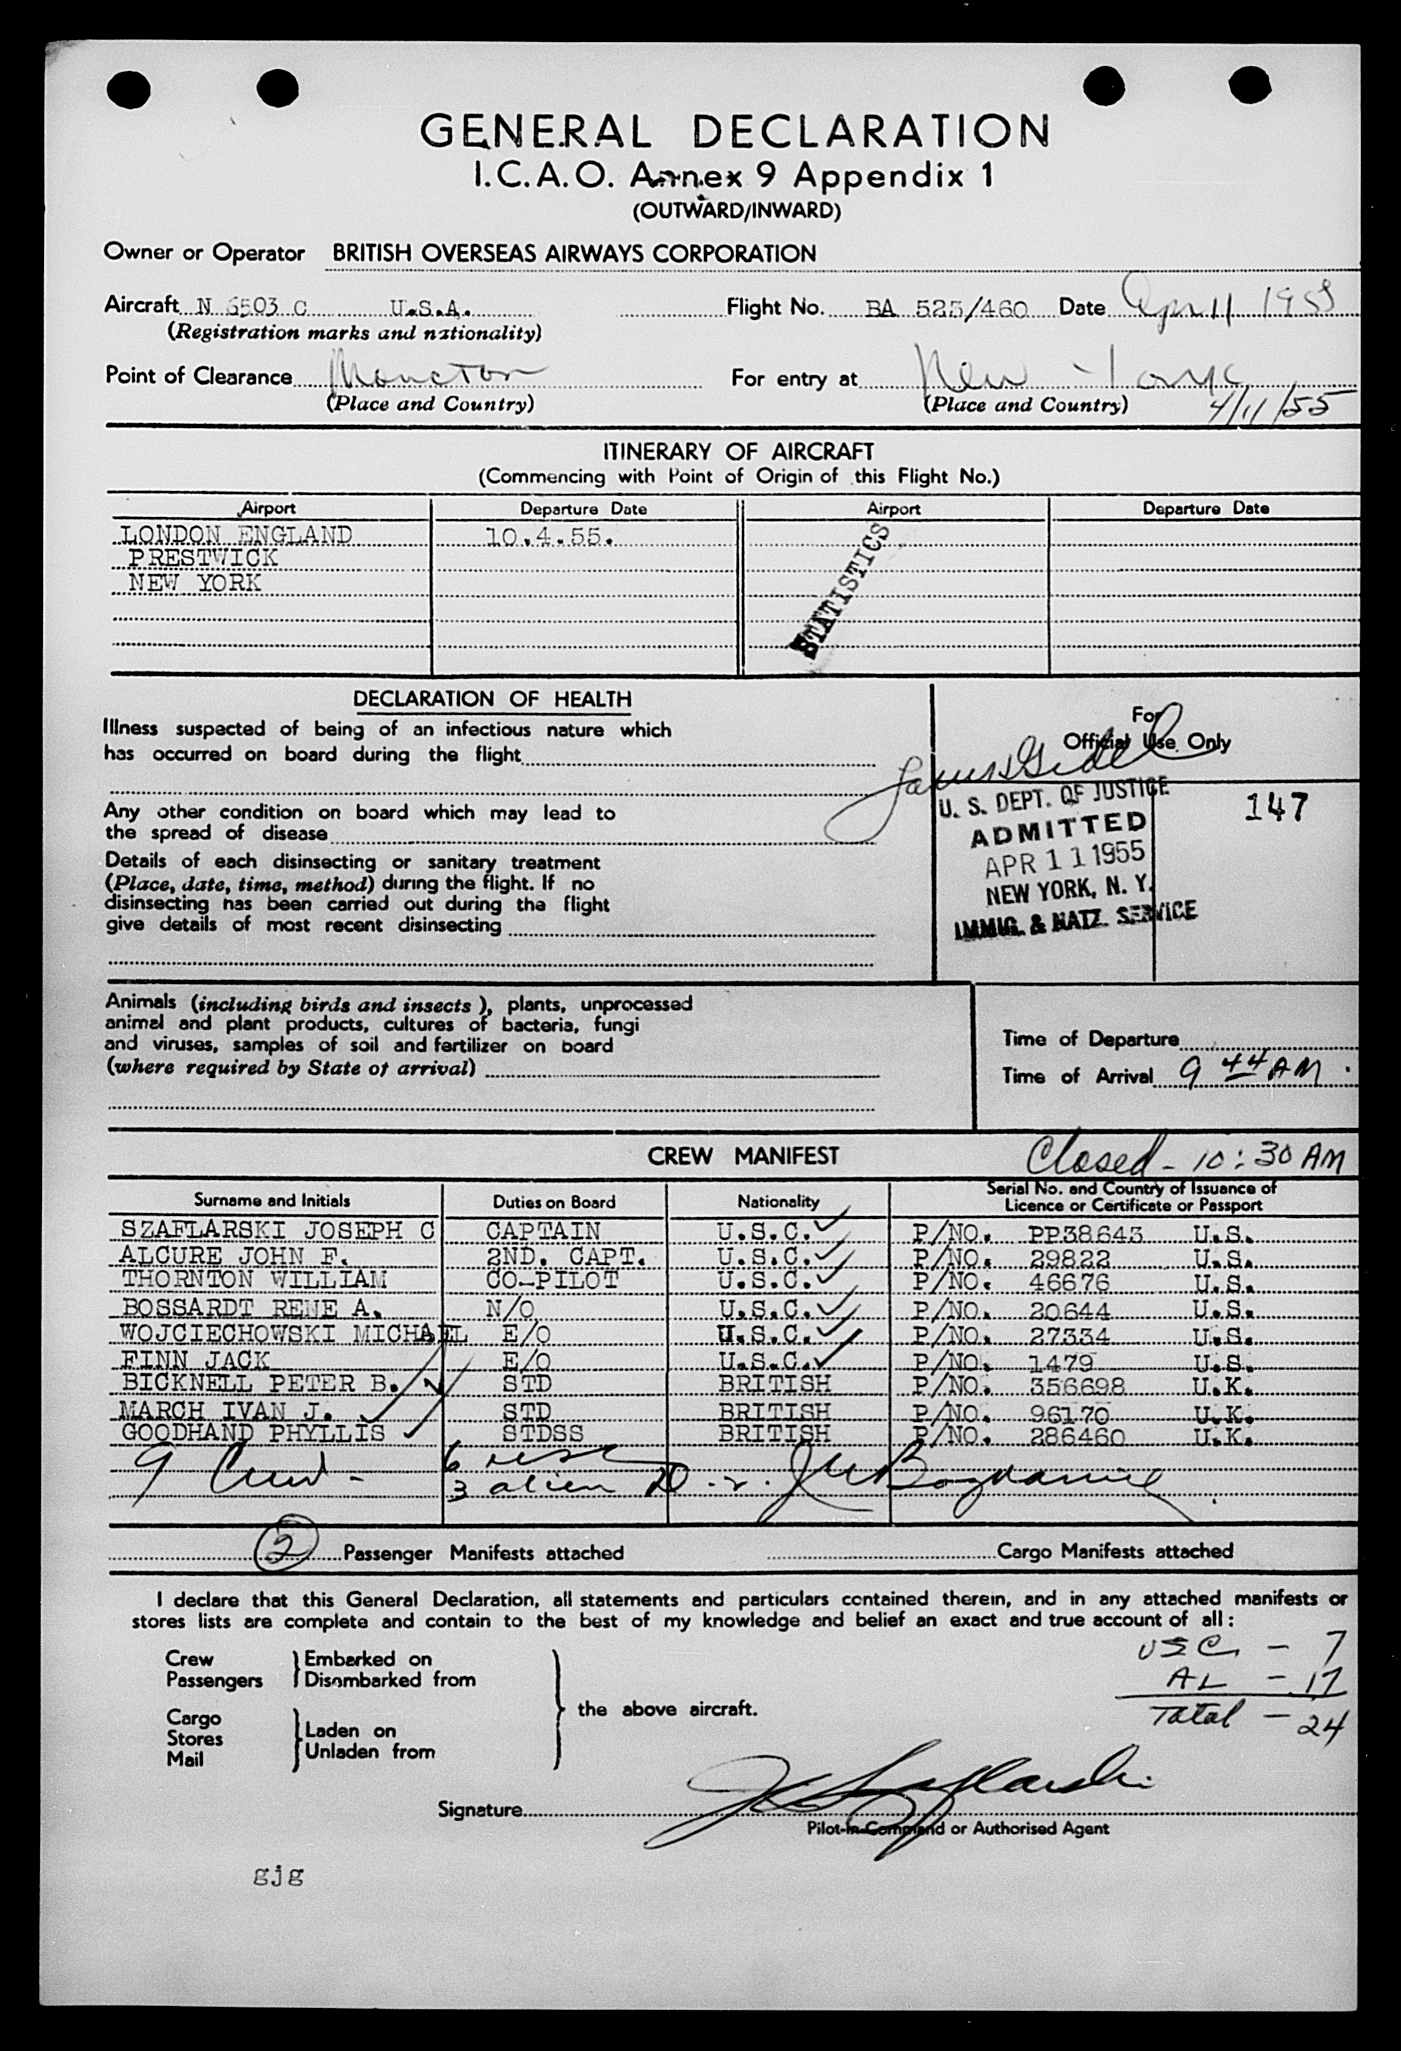 GENERAL DECLARATION
I.C.A.O. Annex 9 Appendix 1
(OUTWARD/INWARD)
Owner or Operator BRITISH OVERSEAS AIRWAYS CORPORATION
Aircraft N 6503 C U.S.A. Flight No. BA 525/460 Date Apr 11 1955
(Registration marks and nationality)
Point of Clearance Moncton For entry at New York
(Place and Country) (Place and Country) 4/11/55
ITINERARY OF AIRCRAFT
(Commencing with Point of Origin of this Flight No.)
Airport Departure Date Airport Departure Date
LONDON ENGLAND 10.4.55.
PRESTWICK
NEW YORK
STATISTICS
DECLARATION OF HEALTH
Illness suspected of being of an infectious nature which
has occurred on board during the flight
Any other condition on board which may lead to
the spread of disease
Details of each disinsecting or sanitary treatment
(Place, date, time, method) during the flight. If no
disinsecting has been carried out during the flight
give details of most recent disinsecting
For
Official Use Only
U. S. DEPT. OF JUSTICE
ADMITTED
APR 11 1955
NEW YORK, N. Y.
IMMIG. & NATZ. SERVICE
147
Animals (including birds and insects), plants, unprocessed
animal and plant products, cultures of bacteria, fungi
and viruses, samples of soil and fertilizer on board
(where required by State of arrival)
Time of Departure
Time of Arrival 9 44 AM
CREW MANIFEST Closed - 10:30 AM
Surname and Initials Duties on Board Nationality Serial No. and Country of Issuance of Licence or Certificate or Passport
SZAFLARSKI JOSEPH C CAPTAIN U.S.C. P/NO. PP38643 U.S.
ALCURE JOHN F. 2ND. CAPT. U.S.C. P/NO. 29822 U.S.
THORNTON WILLIAM CO-PILOT U.S.C. P/NO. 46676 U.S.
BOSSARDT RENE A. N/O U.S.C. P/NO. 20644 U.S.
WOJCIECHOWSKI MICHAEL E/O U.S.C. P/NO. 27334 U.S.
FINN JACK E/O U.S.C. P/NO. 1479 U.S.
BICKNELL PETER B. STD BRITISH P/NO. 356698 U.K.
MARCH IVAN J. STD BRITISH P/NO. 96170 U.K.
GOODHAND PHYLLIS STDSS BRITISH P/NO. 286460 U.K.
9 Crew - 6 usc
3 alien
2 Passenger Manifests attached Cargo Manifests attached
I declare that this General Declaration, all statements and particulars contained therein, and in any attached manifests or
stores lists are complete and contain to the best of my knowledge and belief an exact and true account of all:
Crew Embarked on
Passengers Disembarked from
the above aircraft.
Cargo
Stores Laden on
Mail Unladen from
USC - 7
AL - 17
Total - 24
Signature
Pilot-in-Command or Authorised Agent
gjg